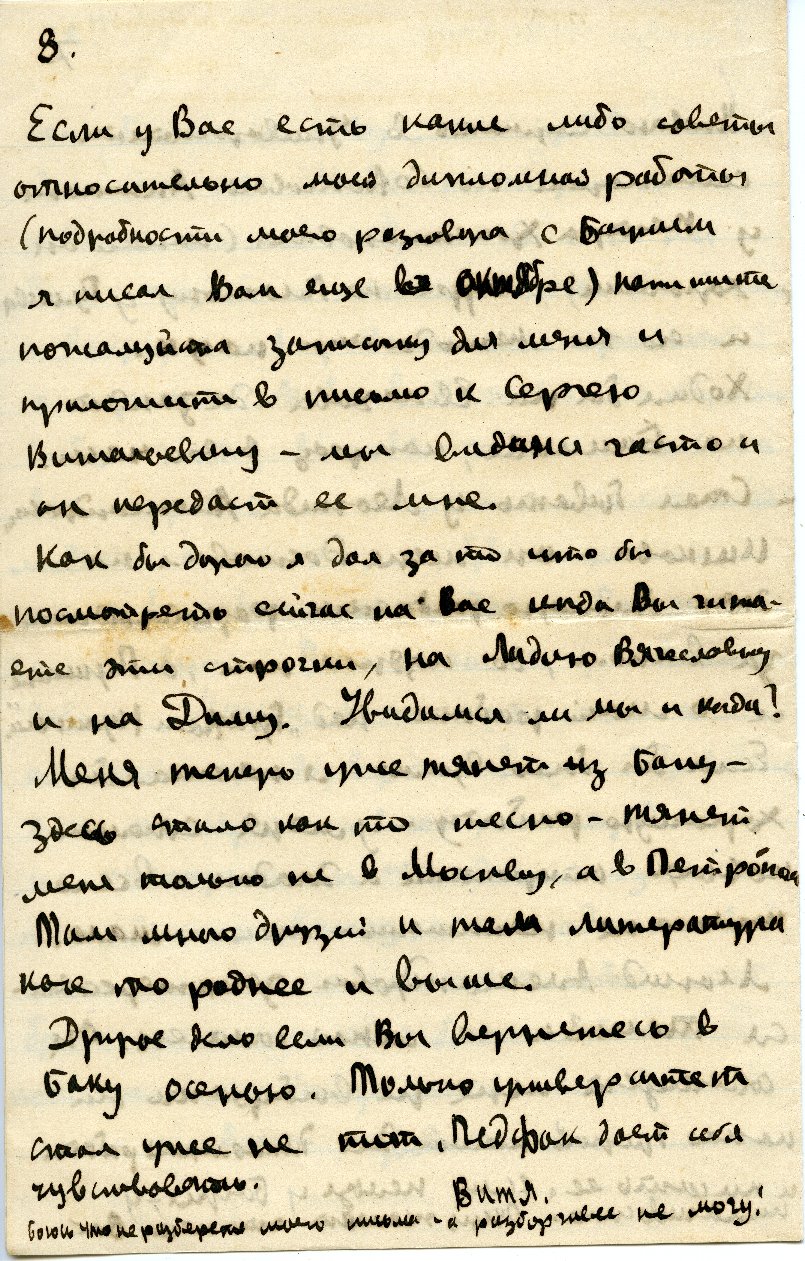 8.
Если у Вас есть какие либо советы
относительно моей дипломной работы
(подробности моего разговора с Багрием
я писал Вам еще в октябре) напишите
пожалуйста записочку для меня и
приложите в письмо к Сергею
Витальевичу – мы видимся часто и
он передаст ее мне.
Как бы дорого я дал за то что бы
посмотреть сейчас на Вас когда Вы чита-
ете эти строчки, на Лидию Вячеславну
и на Диму. Увидимся ли мы и когда?
Меня теперь уже тянет из Баку –
здесь стало как то тесно – тянет
меня только не в Москву, а в Петрополь
Там много друзей и там литература
как то роднее и выше.
Другое дело если Вы вернетесь в
Баку осенью. Только университет
стал уже не тот. Педфак дает себя
чувствовать.
Витя.
Боюсь что не разберете моего письма – а разборчивее не могу!